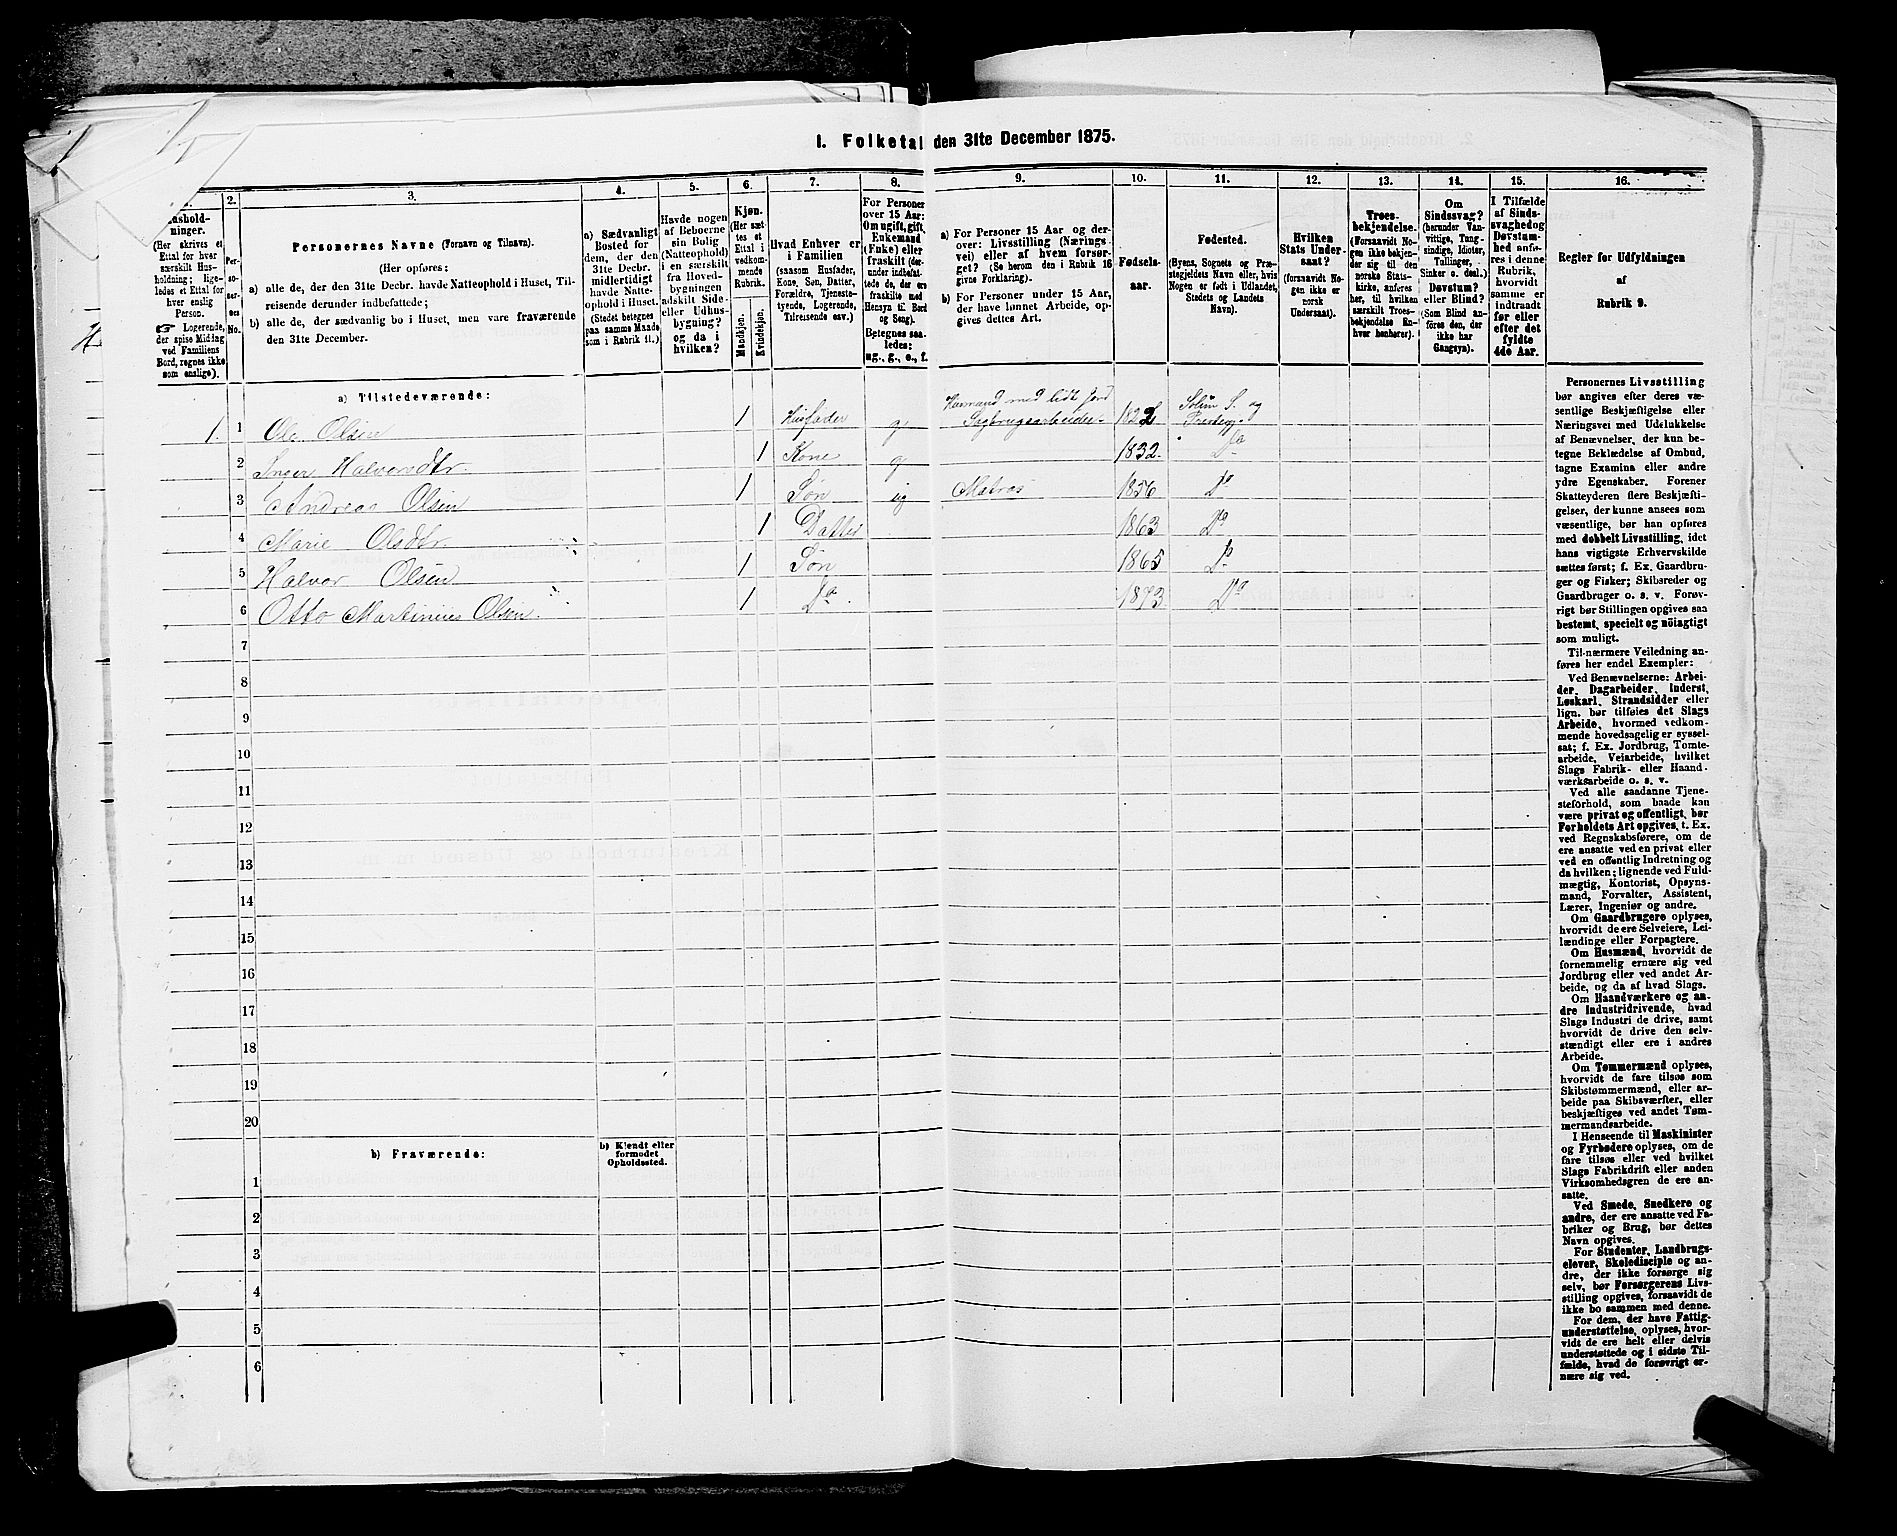 I. Folketal den 31te December 1875.
2. 3. 4. 5. 6. 7. 8. 9. 10. 11. 12. 13. 14. 15. 16.
ninger.
(Her skrives et
Ettal for hver
særskilt Hus-
holdning; lige-
ledes et Ettal for
hver enslig
Person.
☞ Logerende,
der spise Middag
ved Familiens
Bord, regnes ikke
som enslige).
Per-
so-
ner-
nes
No.
Personernes Navne (Fornavn og Tilnavn).
(Her opføres:
a) alle de, der den 31te Decbr. havde Natteophold i Huset, Til-
reisende derunder indbefattede;
b) alle de, der sædvanlig bo i Huset, men vare fraværende
den 31te December.
a) Sædvanligt
Bosted for
dem, der den
31te Decbr.
midlertidigt
havde Natte-
ophold i Huset.
(Stedet betegnes
paa samme Maade
som i Rubrik 11.)
Havde nogen
af Beboerne
sin Bolig
(Natteophold)
i en særskilt
fra Hoved-
bygningen
adskilt Side-
eller Udhus-
bygning?
og da i
hvilken?
Kjøn.
(Her sæt-
tes et
Ettal i
vedkom-
mende
Rubrik.
Mandkjøn.
Kvindekjøn.
Hvad Enhver er
i Familien
(saasom Husfader,
Kone, Søn, Datter,
Forældre, Tjeneste-
tyende, Logerende,
Tilreisende osv.)
For Personer
over 15 Aar:
Om ugift, gift,
Enkemand
(Enke) eller
fraskilt (der-
under indbefat-
tede de, der ere
fraskilte med
Hensyn til Bord
og Seng).
Betegnes saa-
ledes:
ug., g., e., f.
a) For Personer 15 Aar og der-
over: Livsstilling (Nærings-
vei) eller af hvem forsør-
get? (Se herom den i Rubrik 16
givne Forklaring).
b) For Personer under 15 Aar,
der have lønnet Arbeide, op-
gives dettes Art.
Fødsels-
aar.
Fødested.
(Byens, Sognets og Præ-
stegjeldets Navn eller, hvis
Nogen er født i Udlandet,
Stedets og Landets
Navn).
Hvilken
Stats Under-
saat?
(forsaavidt No-
gen ikke er
norsk
Undersaat).
Troes-
bekjendelse.
(Forsaavidt No-
gen ikke bekjen-
der sig til den
norske Stats-
kirke, anføres
her, til hvilken
særskilt Troes-
bekjendelse En-
hver henhører).
Om
Sindssvag?
(herunder Van-
vittige, Tung-
sindige, Idioter,
Tullinger,
Sinker o. desl.)
Døvstum?
eller Blind?
(Som Blind an-
føres den, der
ikke har
Gangsyn).
I Tilfælde
af Sinds-
svaghed og
Døvstum-
hed anfø-
res i denne
Rubrik,
hvorvidt
samme er
indtraadt
før eller
efter det
fyldte
4de Aar.
Regler for Udfyldningen
af
Rubrik 9.
a) Tilstedeværende:
1. 1 Ole Olsen 1 Husfader g Husmand med lidt Jord Sagbrugsarbeider 1822
2 Inger Halvorsdtr. 1 Kone g 1832. Do
3 Andreas Olsen 1 Søn ug Matros 1856 Do
4 Marie Olsdtr. 1 Datter 1863 Do
5 Halvor Olsen 1 Søn 1865 Do
6 Otto Martinius Olsen. 1 Do 1873. Do
7
8
9
10
11
12
13
14
15
16
17
18
19
20
b) Fraværende:
b) Kjendt eller
formodet
Opholdssted.
1
2
3
4
5
6
Personernes Livsstilling
bør angives efter deres væ-
sentlige Beskjæftigelse eller
Næringsvei med Udelukkelse
af Benævnelser, der kun be-
tegne Beklædelse af Ombud,
tagne Examina eller andre
ydre Egenskaber. Forener
Skatteyderen flere Beskjæfti-
gelser, der kunne ansees som
væsentlige, bør han opføres
med dobbelt Livsstilling, idet
hans vigtigste Erhvervskilde
sættes først; f. Ex. Gaardbru-
ger og Fisker; Skibsreder og
Gaardbruger o. s. v. Forøv-
rigt bør Stillingen opgives saa
bestemt, specielt og nöiagtigt
som muligt.
Til nærmere Veiledning an-
føres her endel Exempler:
Ved Benævnelserne: Arbei-
der, Dagarbeider, Inderst,
Løskarl, Strandsidder eller
lign. bør tilføies det Slags
Arbeide, hvormed vedkom-
mende hovedsagelig er syssel-
sat; f. Ex. Jordbrug, Tomte-
arbeide, Veiarbeide, hvilket
Slags Fabrik- eller Haand-
værksarbeide o. s. v.
Ved alle saadanne Tjene-
steforhold, som baade kan
være privat og offentligt, bør
Forholdets Art opgives, t. Ex.
ved Regnskabsførere, om de
ere ansatte ved en privat eller
ved en offentlig Indretning og
da hvilken; lignende ved Fuld-
mægtig, Kontorist, Opsyns-
mand, Forvalter, Assistent,
Lærer, Ingeniør og andre.
Om Gaardbrugere oplyses,
hvorvidt de ere Selveiere, Lei-
lændinge eller Forpagtere.
Om Husmænd, hvorvidt de
fornemmelig ernære sig ved
Jordbrug eller ved andet Ar-
beide, og da af hvad Slags.
Om Haandværkere og an-
dre Industridrivende, hvad
Slags Industri de drive, samt
hvorvidt de drive den selv-
stændigt eller ere i andres
Arbeide.
Om Tømmermænd oplyses,
hvorvidt de fare tilsøs som
Skibstømmermænd, eller ar-
beide paa Skibsværfter, eller
beskjæftiges ved andet Tøm-
mermandsarbeide.
I Henseende til Maskinister
og Fyrbødere oplyses, om de
fare tilsøs eller ved hvilket
Slags Fabrikdrift eller anden
Virksomhedsgren de ere an-
satte.
Ved Smede, Snedkere og
andre, der ere ansatte ved Fa-
briker og Brug, bør dettes
Navn opgives.
For Studenter, Landbrugs-
elever, Skoledisciple og an-
dre, der ikke forsørge sig
selv, bør Forsørgerens Livs-
stilling opgives, forsaavidt de
ikke bo sammen med denne.
For dem, der have Fattig-
understøttelse, oplyses, hvor-
vidt de ere helt eller delvis
understøttede og i sidste Til-
fælde, hvad de forøvrigt er-
nære sig ved.